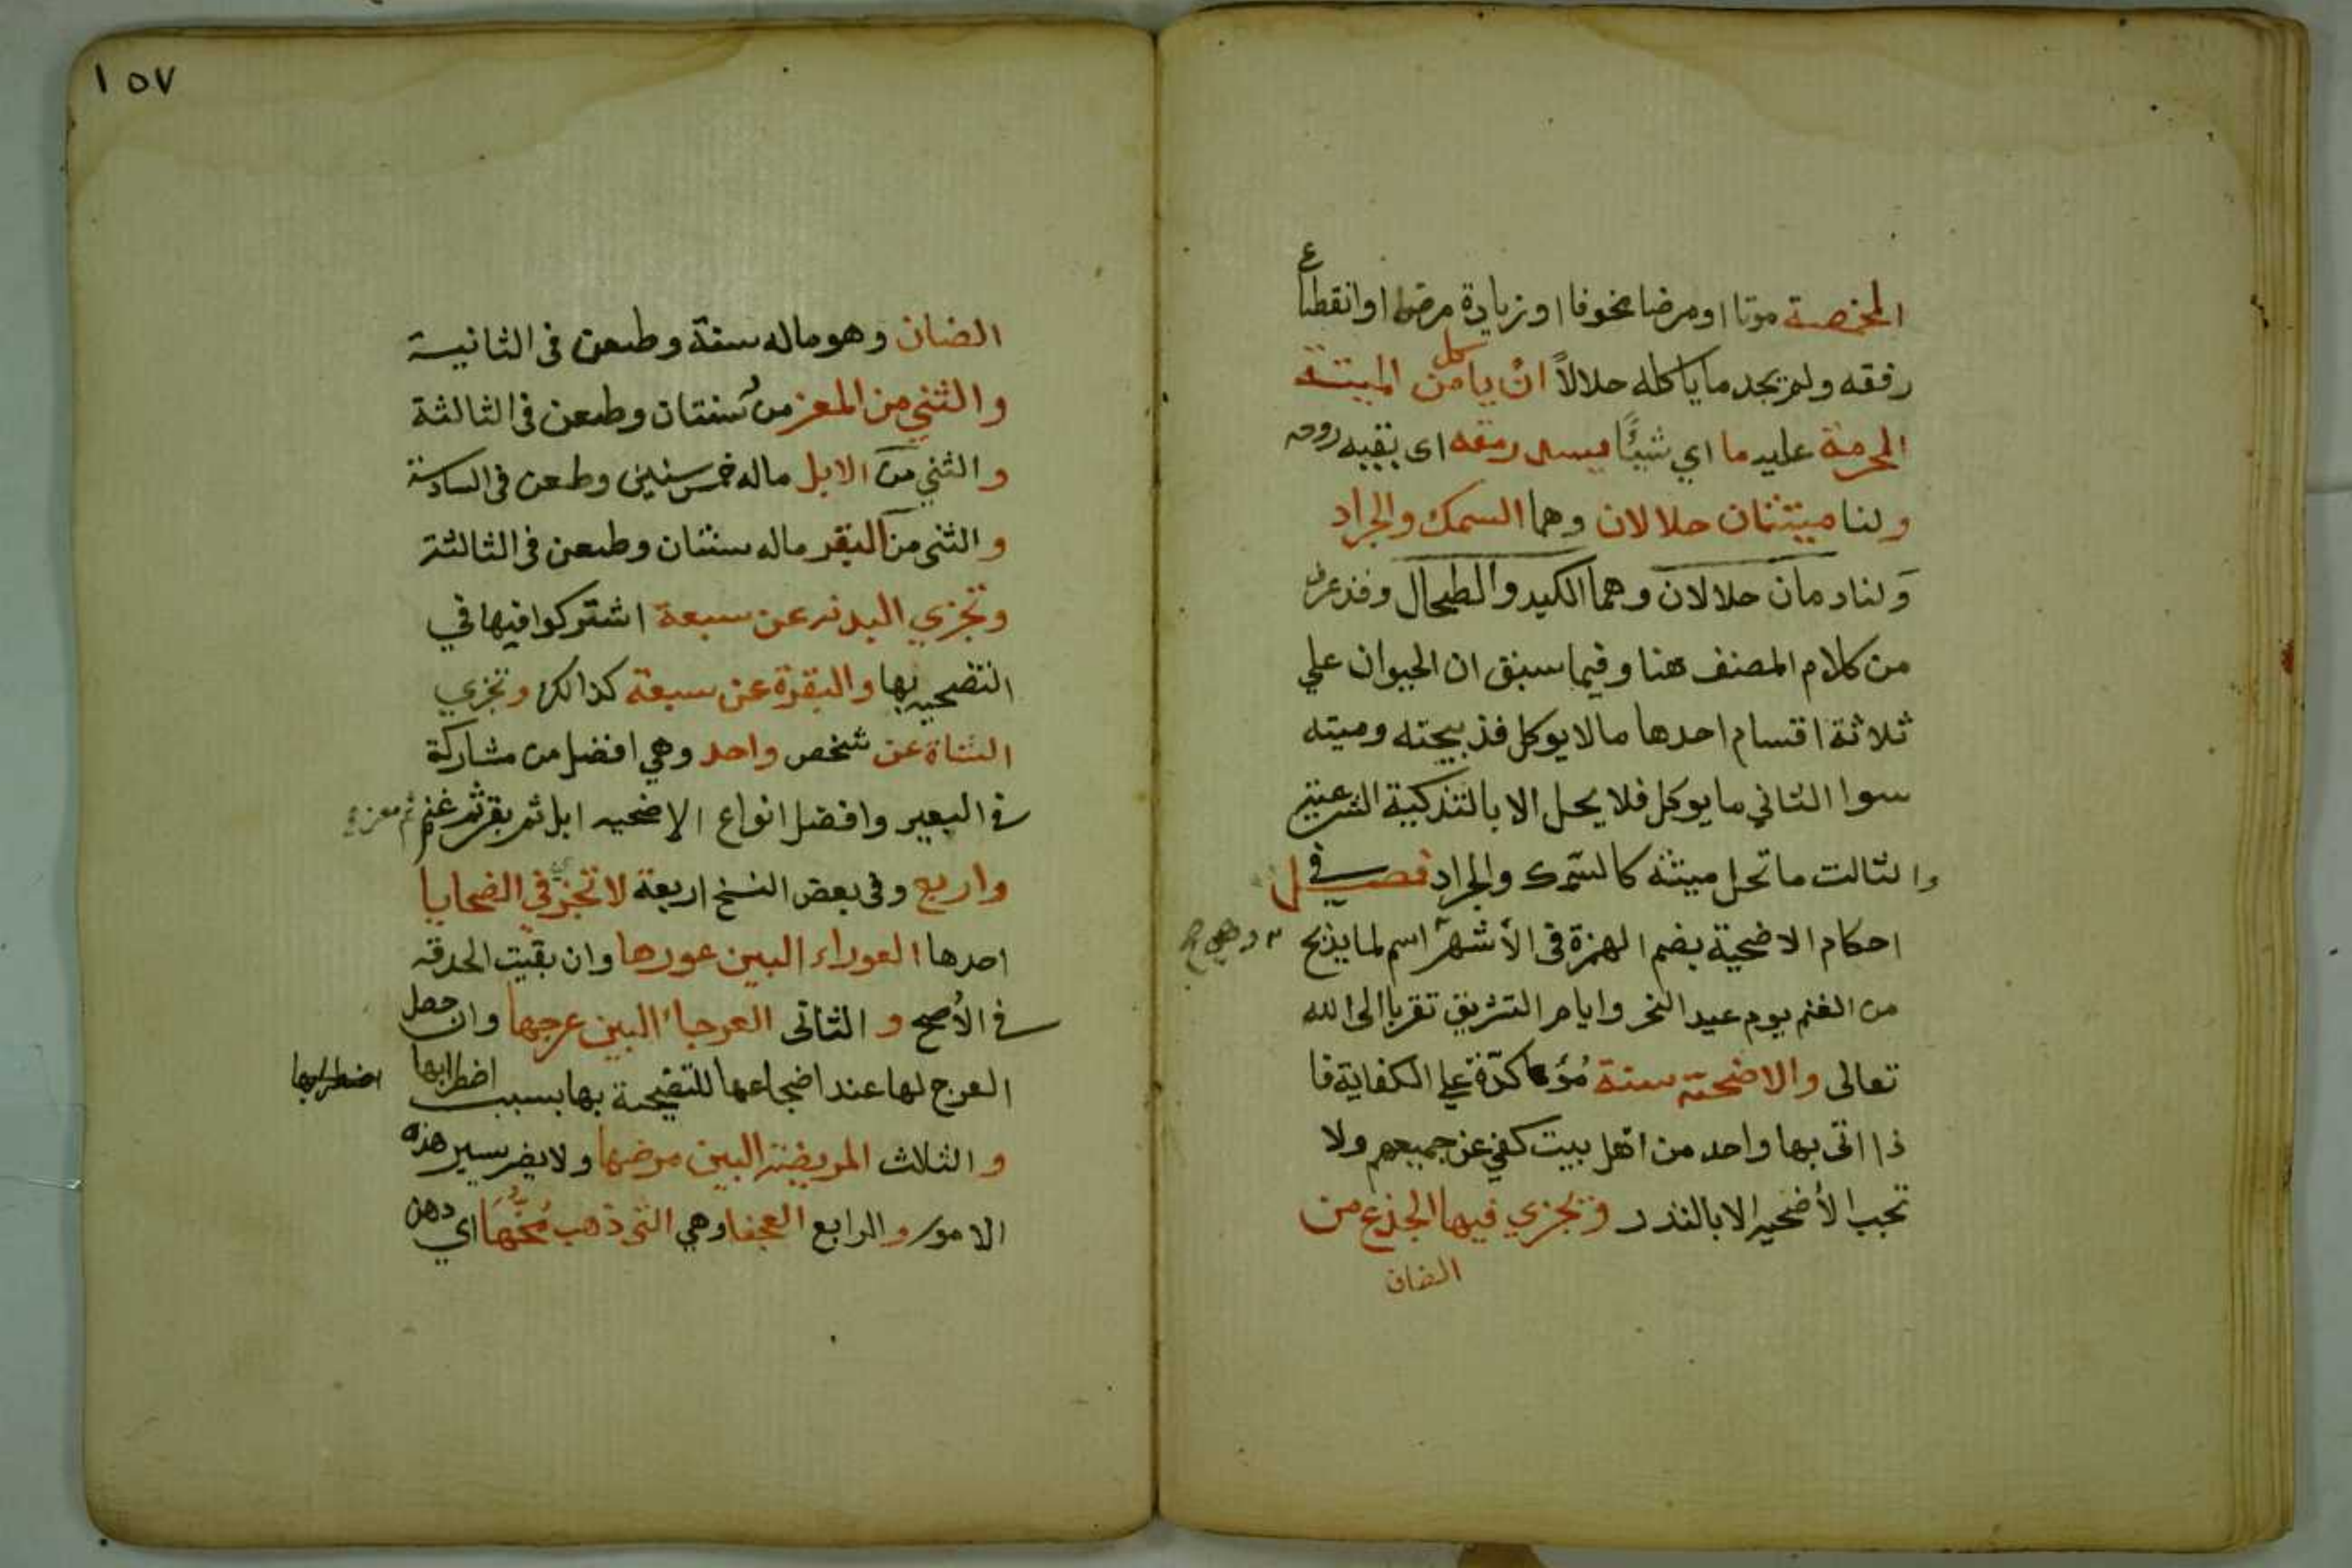 المخمصة موتا او مرضا مخوفا او زيادة مرض او انقطاع
رفقه ولم يجد ما ياكله حلالاً ان ياكل من الميتة
المحرمة عليه ما اي شيئًا يسد رمقه اى بقيه روحه
ولنا ميتتان حلالان وهما السمك والجراد
وَلنا دمان حلالان وهما الكبد والطحال وقد عرف
من كلام المصنف هنا وفيما سبق ان الحيوان علي
ثلاثة اقسام احدها مالا يوكل فذبيحته وميته
سوا الثاني ما يوكل فلا يحل الا بالتذكية الشرعية
والثالت ما تحل ميتته كالسمك والجراد فصل في
احكام الاضحية بضم الهمزة فى الأشهر اسم لما يذبح
من الغنم يوم عيد النحر وايام التشريق تقربا الى الله
تعالى والاضحية سنة مُؤكدّة علي الكفاية فا
ذا اتى بها واحد من اهل بيت كفي عن جميعهم ولا
تجب الأضحيه الا بالنذر وتجزي فيها الجذع من
الضان
١٥٧
الضان وهو ماله سنة وطعن فى الثانية
والثني من المعز من سنتان وطعن فى الثالثة
والثني من الابل ماله خمس سنين وطعن فى السادسة
والثنى من البقر ماله سنتان وطعن فى الثالثة
وتجزي البدنه عن سبعة اشتركوا فيها في
التضحيه بها والبقرة عن سبعة كذالك وتجزي
الشاة عن شخص واحد وهي افضل من مشاركة
فى البعير وافضل انواع الإضحيه ابل ثم بقر ثم غنم ثم معز
واربع وفى بعض النسخ اربعة لا تجزي في الضحايا
احدها العوراء البين عورها وان بقيت الحدقه
فى الأصح و الثانى العرجاء البين عرجها وان حصل
العرج لها عند اضجاعها للتضحية بها بسبب اضطرابها
اضطرابها
و الثلاث المريضة البين مرضها ولا يضر يسير هذه
الامور والرابع العجفا وهي التى ذهب مُخُّهَا اي دهن